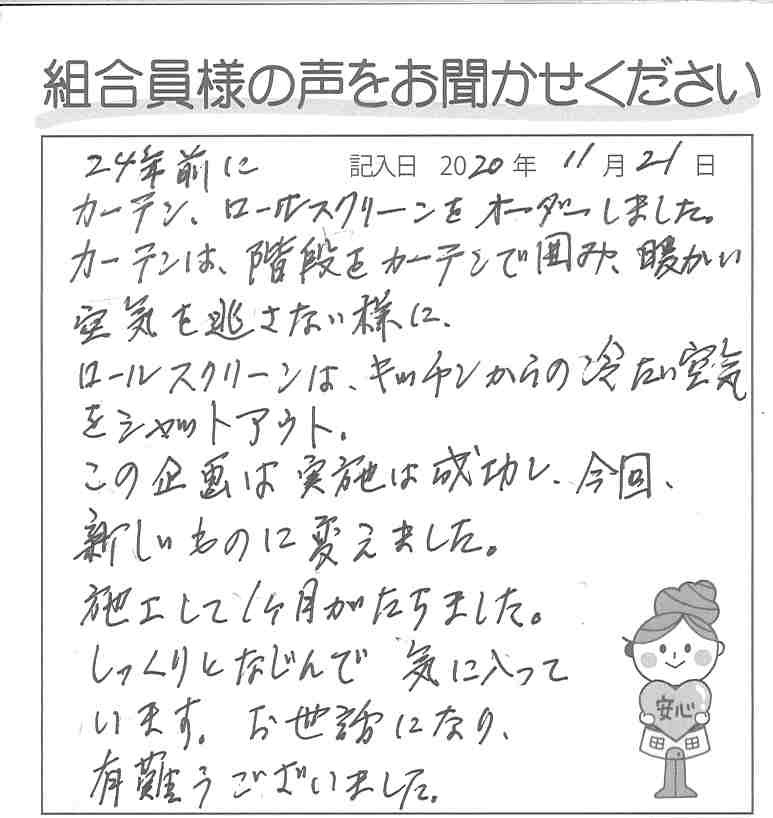 組合員様の声をお聞かせください
記入日 2020年 11月21日
24年前に
カーテン、ロールスクリーンをオーダーしました。
カーテンは、階段をカーテンで囲み、暖かい
空気を逃さない様に、
ロールスクリーンは、キッチンからの冷たい空気
をシャットアウト。
この企画は実施は成功し、今回、
新しいものに変えました。
施工して1ヶ月がたちました。
しっくりとなじんで 気に入って
います。お世話になり、
有難うございました。
安心